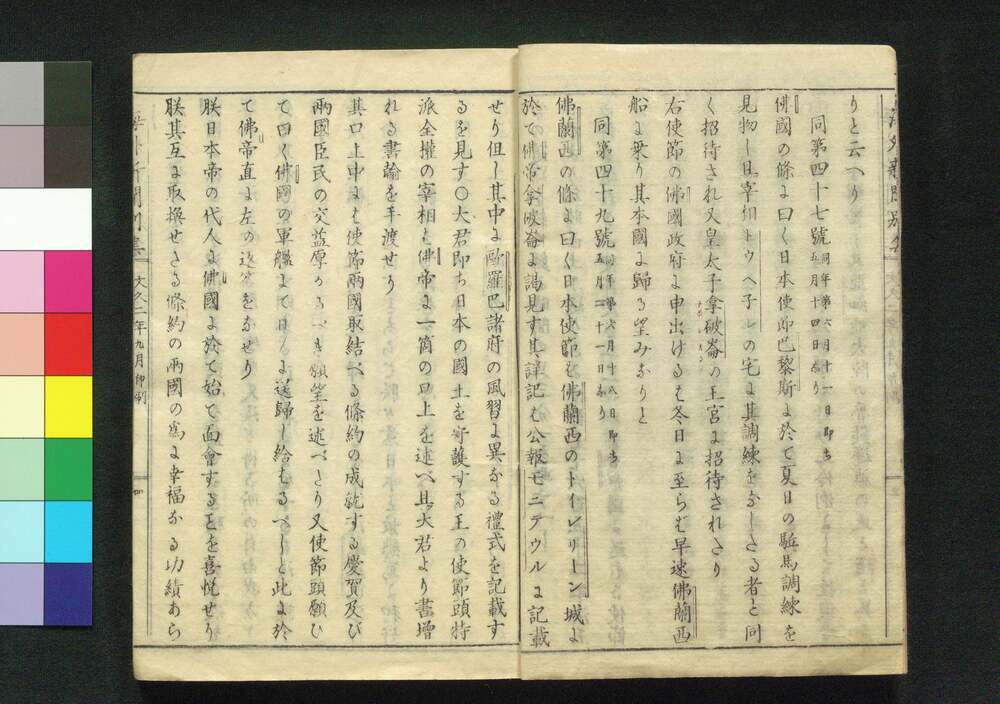 りと云へり
同第四十七號 同年第六月十一日即当五月十四日なり
佛國の條よ曰く日本使節巴黎斯よ於て夏日の駈馬調練を
見物し且宰相トウヘ子レの宅よ其調練をなしたる者と同
く招待され又皇太子拿破崙の王宮よ招待されたり
右使節の佛國政府よ申出けるは冬日よ至らば早速佛蘭西
船よ乗り其本國よ歸る望みなりと
同第四十九號 同年第六月十八日即当五月二十一日なり
佛蘭西の條よ曰く日本使節を佛蘭西のトイレリーン城よ
於て佛帝拿破崙よ謁見す其詳記は公報モニテウルよ記載
せり但し其中よ歐羅巴諸府の風習よ異なる禮式を記載す
るを見す〇大君即ち日本の國土を守護する王の使節頭特
派全權の宰相と佛帝よ一箇の口上を述べ且大君より書增
れる書翰を手渡せり
其口上中よは使節兩國取結べる條約の成就する慶賀及び
兩國臣民の交益厚からべき願望を述べたり又使節頭願ひ
て曰く佛國の軍艦よて日本よ送歸し給はるべしと此よ於
て佛帝直よ左の返答をなせり
朕日本帝の代人よ佛國よ於て始て面會することを喜悦せり
朕其互よ取換せさる條約の兩國の爲よ幸福なる功績あら
文久二年九月印刷
四